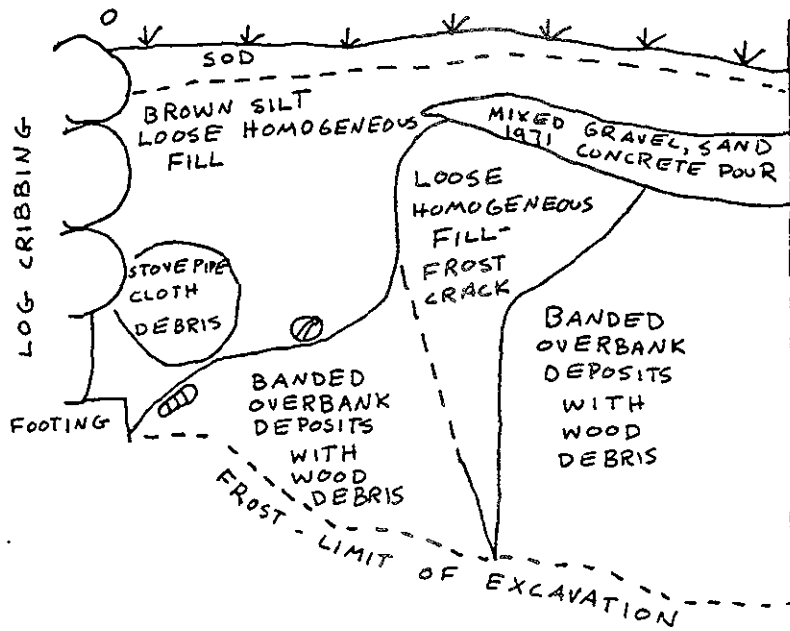 O
SOD
BROWN SILT
LOOSE HOMOGENEOUS
FILL
MIXED GRAVEL, SAND
1971 CONCRETE POUR
LOG CRIBBING
LOOSE
HOMOGENEOUS
FILL-
FROST
CRACK
STOVE PIPE
CLOTH
DEBRIS
BANDED
OVERBANK
DEPOSITS
WITH
WOOD
DEBRIS
BANDED
OVERBANK
DEPOSITS
WITH
WOOD
DEBRIS
FOOTING
FROST - LIMIT OF EXCAVATION